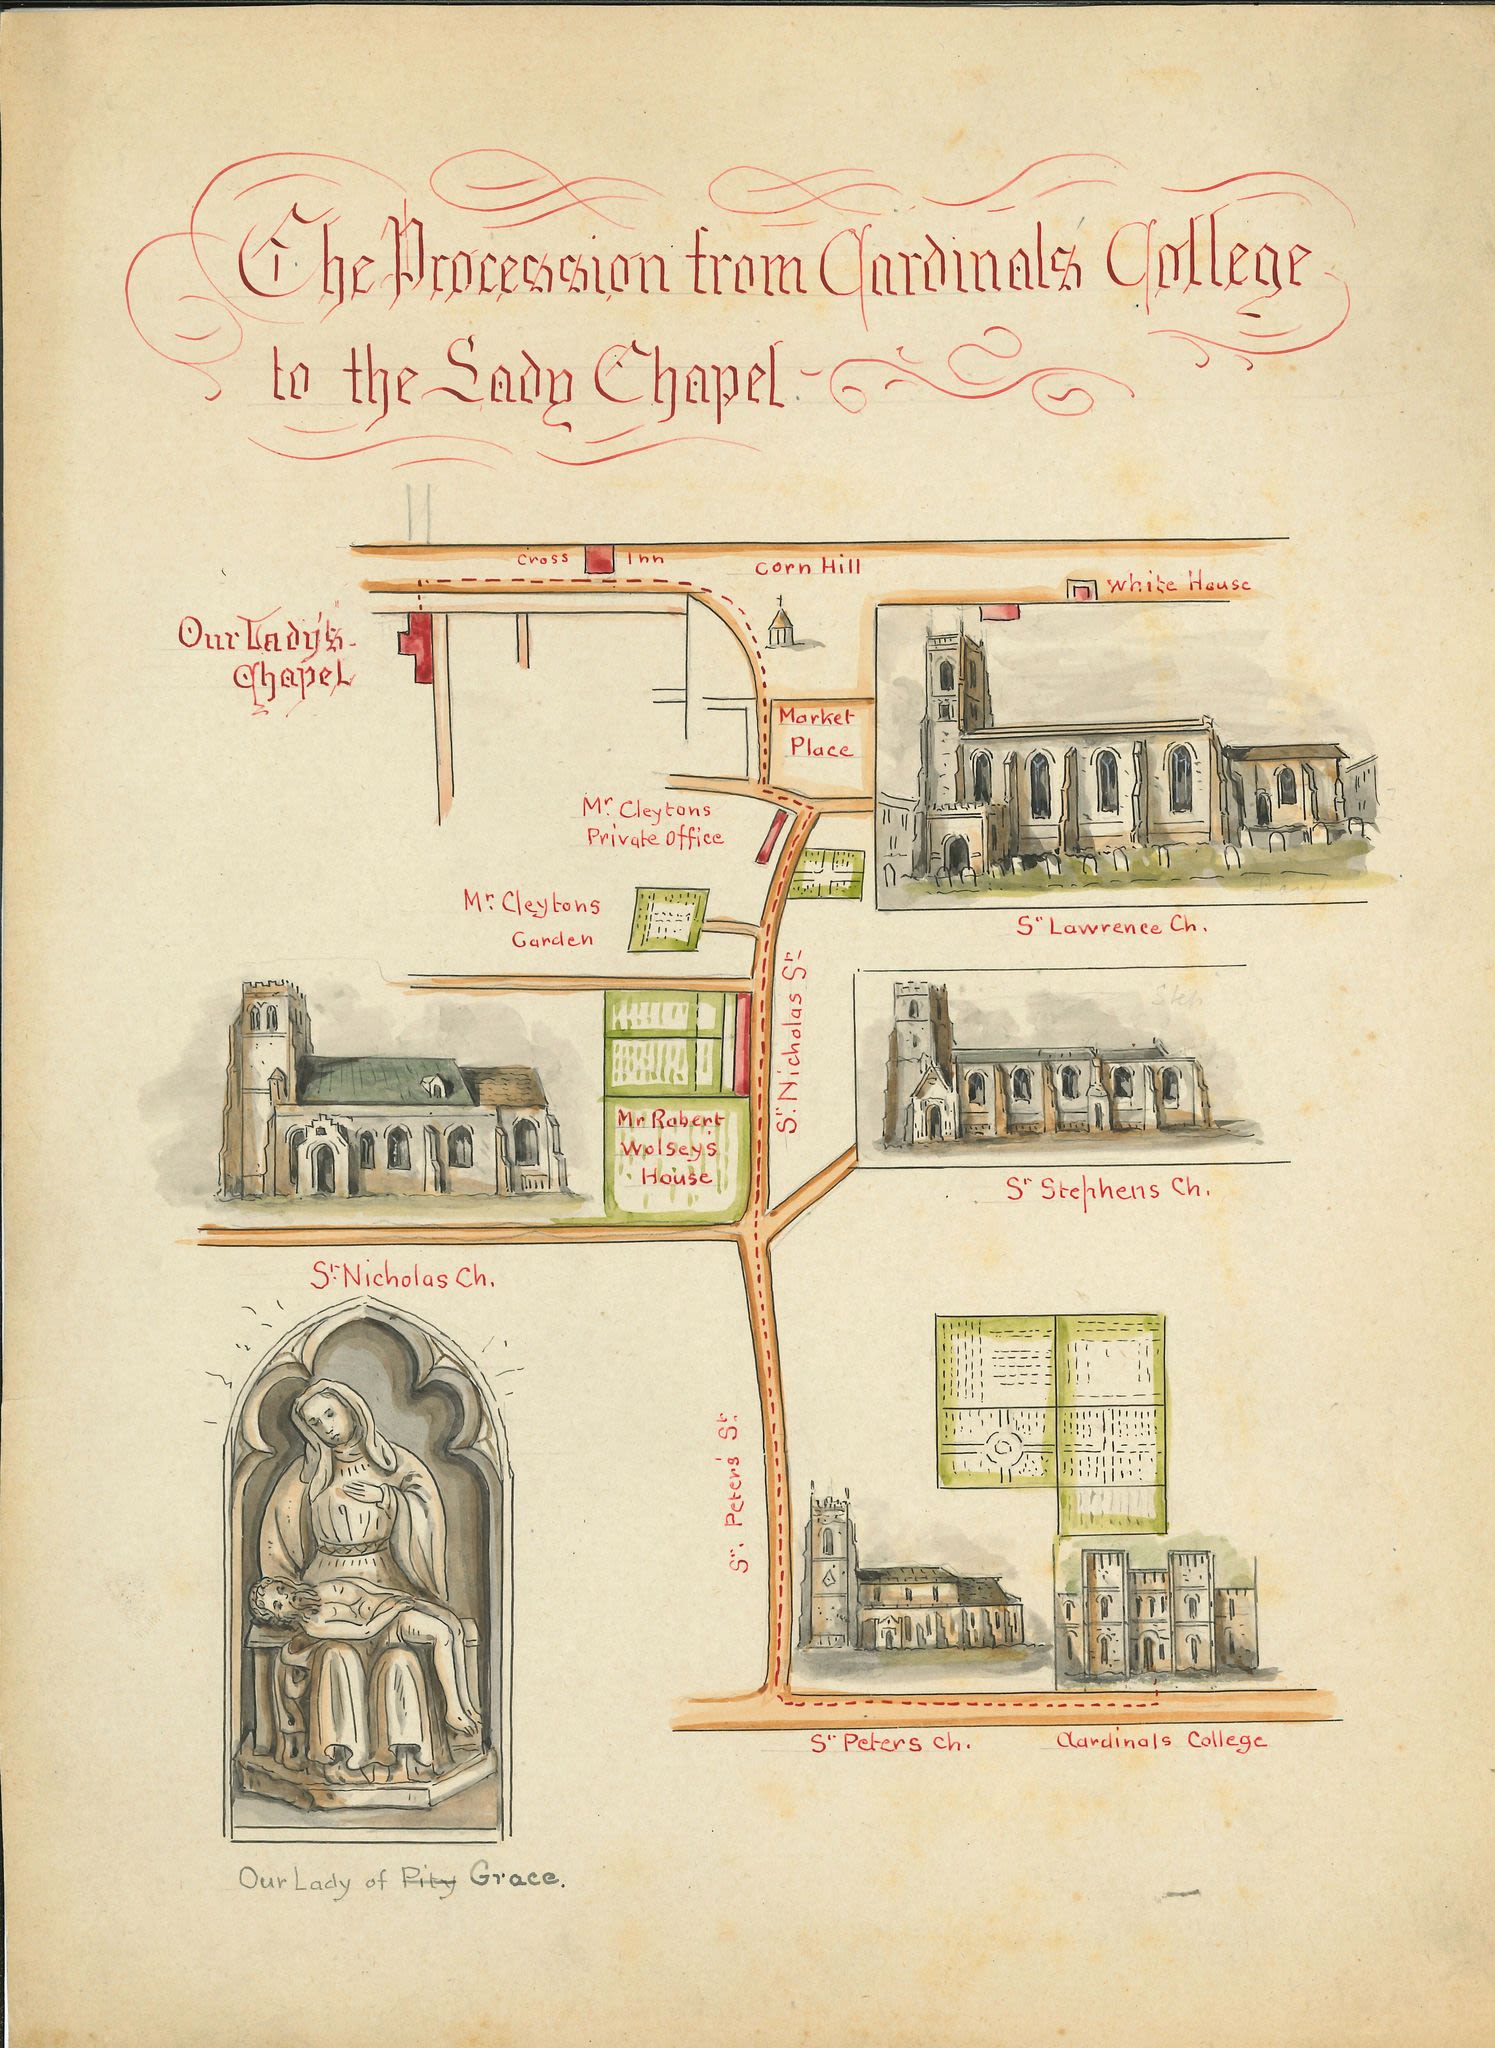 The Procession from Cardinals College
to the Lady Chapel
Cross Inn
Corn Hill
White House
Our Lady's
Chapel
Market
Place
Mr. Cleytons
Private Office
Mr. Cleytons
Garden
St Lawrence Ch.
St. Nicholas St.
Mr Robert
Wolsey's
House
St Stephens Ch.
St. Nicholas Ch.
St. Peter's St.
St Peters Ch.
Cardinals College
Our Lady of Pity Grace.